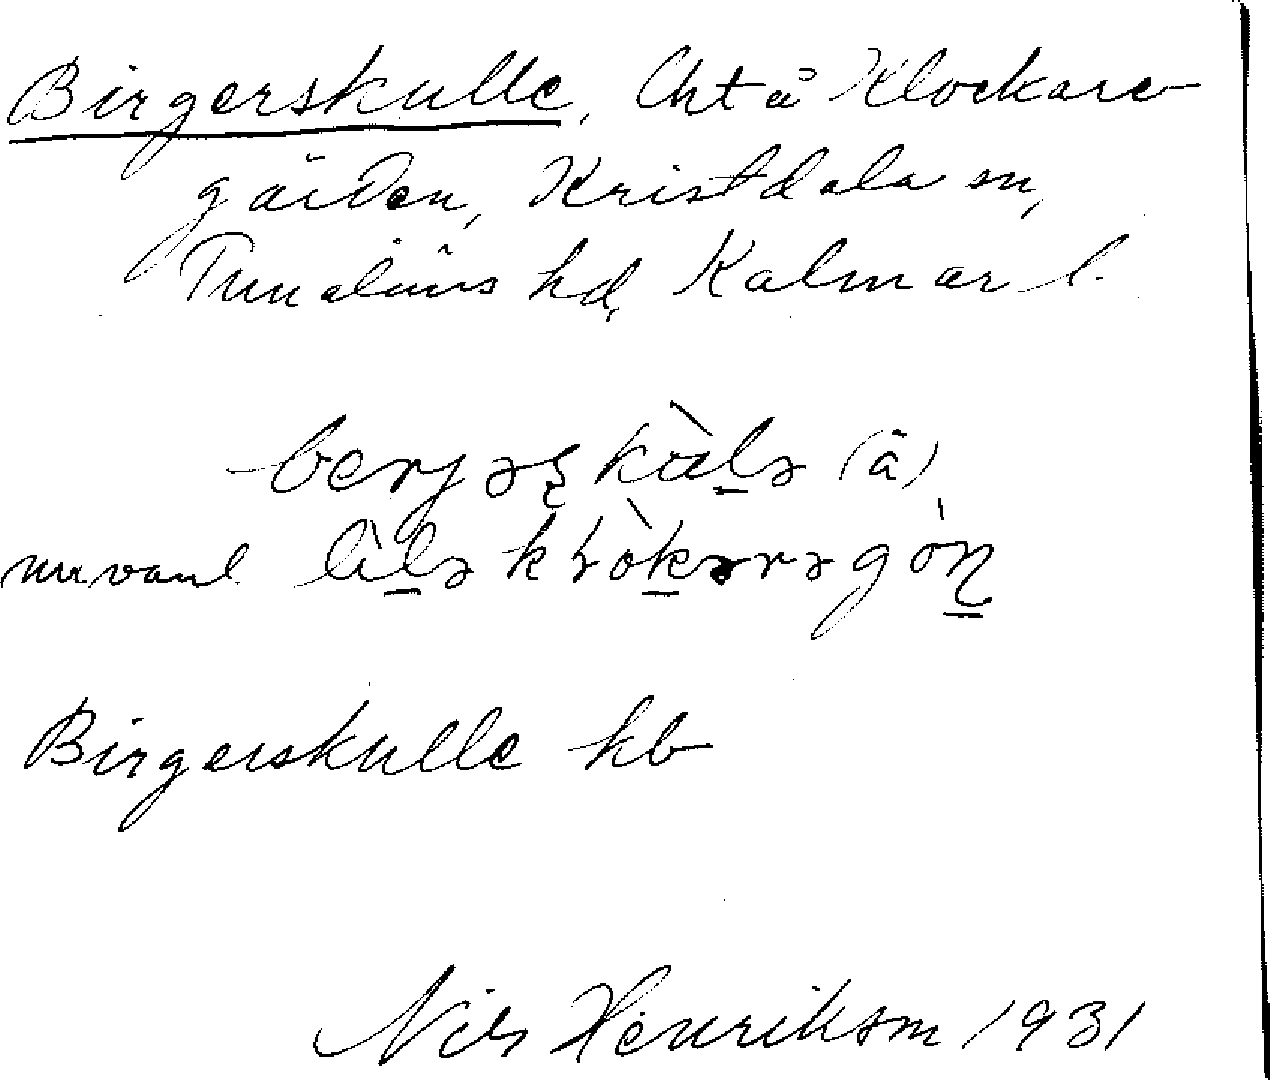 Birgerskulle, lht å Klockare-
gården, Kristdala sn,
Tunaläns hd, Kalmar l.
berjəʂkùlə (ä)
numvanl lìlə kɽòkərəgòɳ
Birgerskulle kb
Nils Henrikson 1931